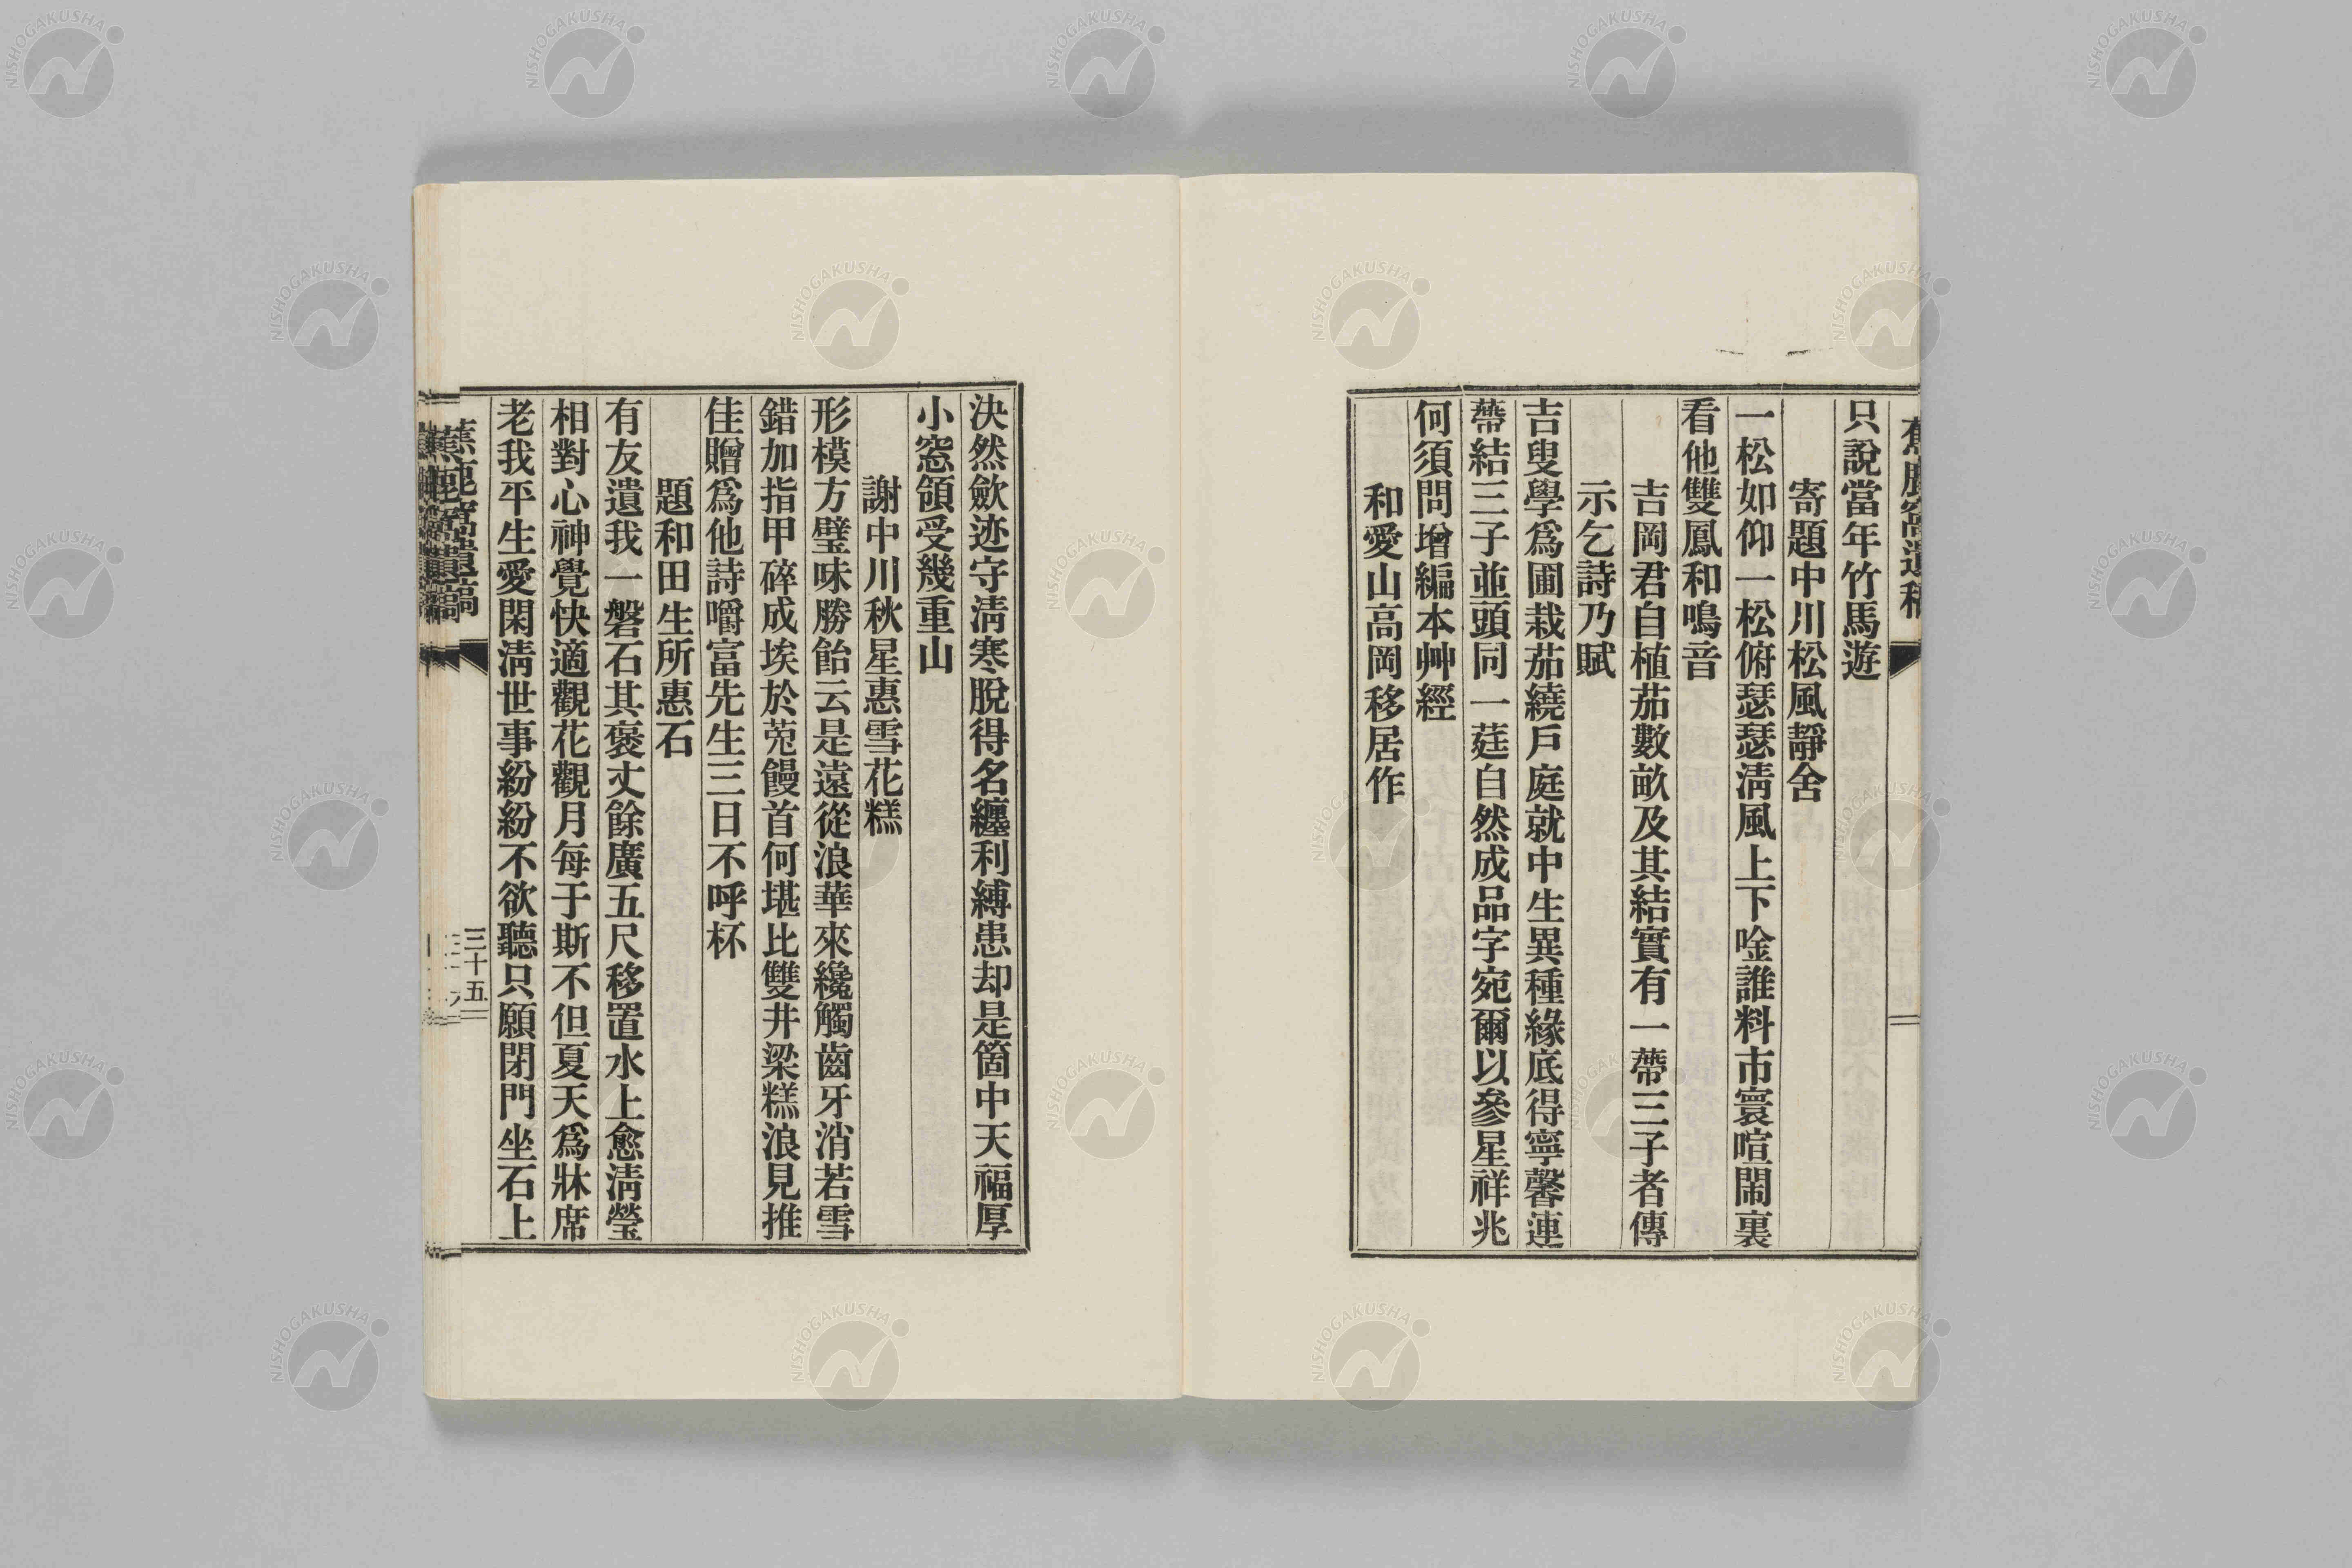 蕉鹿窩遺稿
只說當年竹馬遊
寄題中川松風靜舍
一松如仰一松俯瑟瑟淸風上下唫誰料市寰喧鬧裏
看他雙鳳和鳴音
吉岡君自植茄數畝及其結實有一蔕三子者傳
示乞詩乃賦
吉叟學爲圃栽茄繞戶庭就中生異種緣底得寧馨連
蔕結三子並頭同一莛自然成品字宛爾以參星祥兆
何須問增編本艸經
和愛山高岡移居作
決然斂迹守淸寒脫得名纏利縛患却是箇中天福厚
小窓領受幾重山
謝中川秋星惠雪花糕
形模方璧味勝飴云是遠從浪華來纔觸齒牙消若雪
錯加指甲碎成埃於菟饅首何堪比雙井梁糕浪見推
佳贈爲他詩嚼富先生三日不呼杯
題和田生所惠石
有友遺我一磐石其袤丈餘廣五尺移置水上愈淸瑩
相對心神覺快適觀花觀月每于斯不但夏天爲牀席
老我平生愛閑淸世事紛紛不欲聽只願閉門坐石上
蕉鹿窩遺稿
三十五
NISHOGAKUSHA